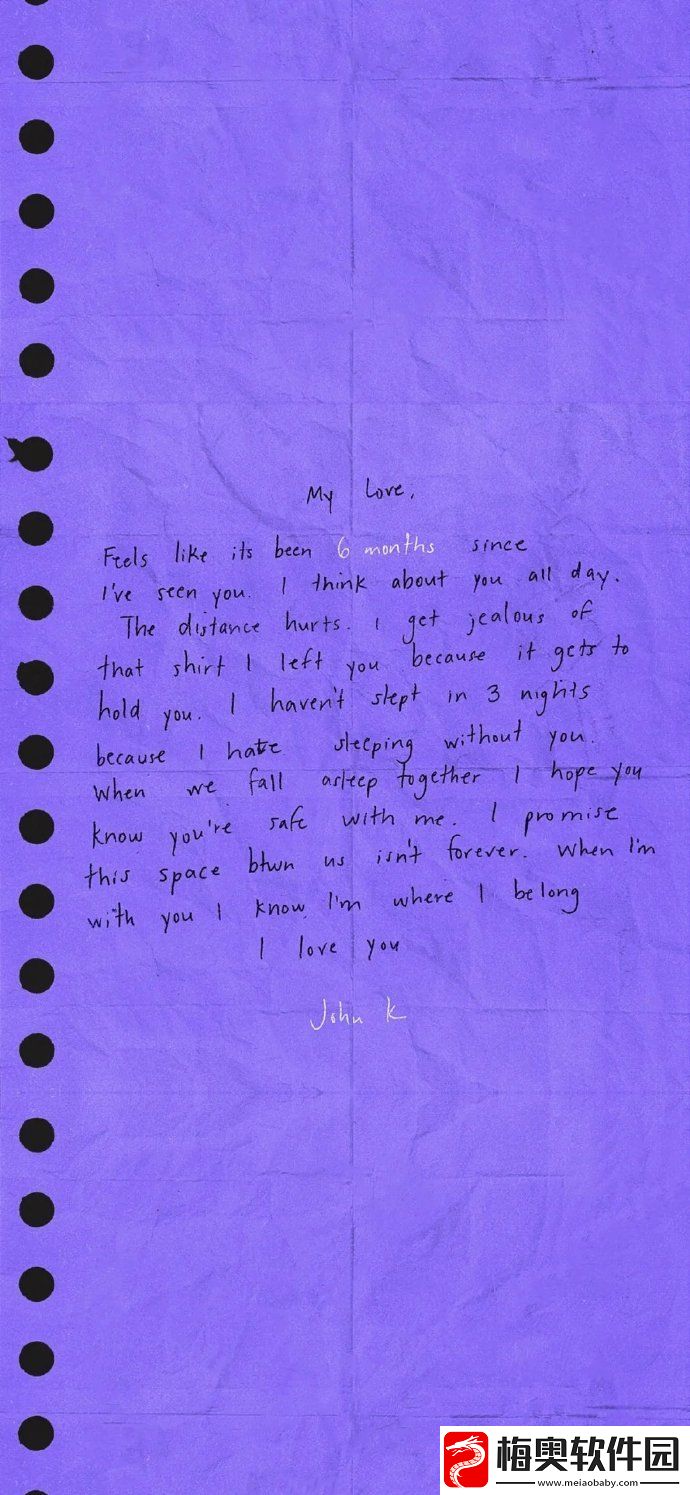 My love,
Feels like its been 6 months since
I've seen you. I think about you all day.
The distance hurts. I get jealous of
that shirt I left you because it gets to
hold you. I haven't slept in 3 nights
because I hate sleeping without you.
When we fall asleep together I hope you
know you're safe with me. I promise
this space btwn us isn't forever. When I'm
with you I know I'm where I belong
I love you
John K
梅奥软件园
www.meiaobaby.com